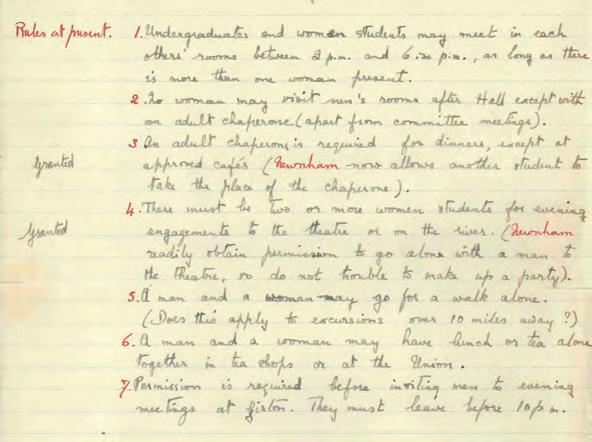 Rules at present. 1. Undergraduates and women students may meet in each
others' rooms between 2 p.m. and 6.30 p.m., as long as there
is more than one woman present.
2. No woman may visit men's rooms after Hall except with
an adult chaperone (apart from committee meetings).
3 An adult chaperone is required for dinners, except at
Granted approved cafés (Newnham now allows another student to
take the place of the chaperone).
4. There must be two or more women students for evening
Granted engagements to the theatre or on the river. (Newnham
readily obtain permission to go alone with a man to
the theatre, so do not trouble to make up a party).
5. A man and a woman may go for a walk alone.
(Does this apply to excursions over 10 miles away?)
6. A man and a woman may have lunch or tea alone
together in tea shops or at the Union.
7. Permission is required before inviting men to evening
meetings at Girton. They must leave before 10 p.m.